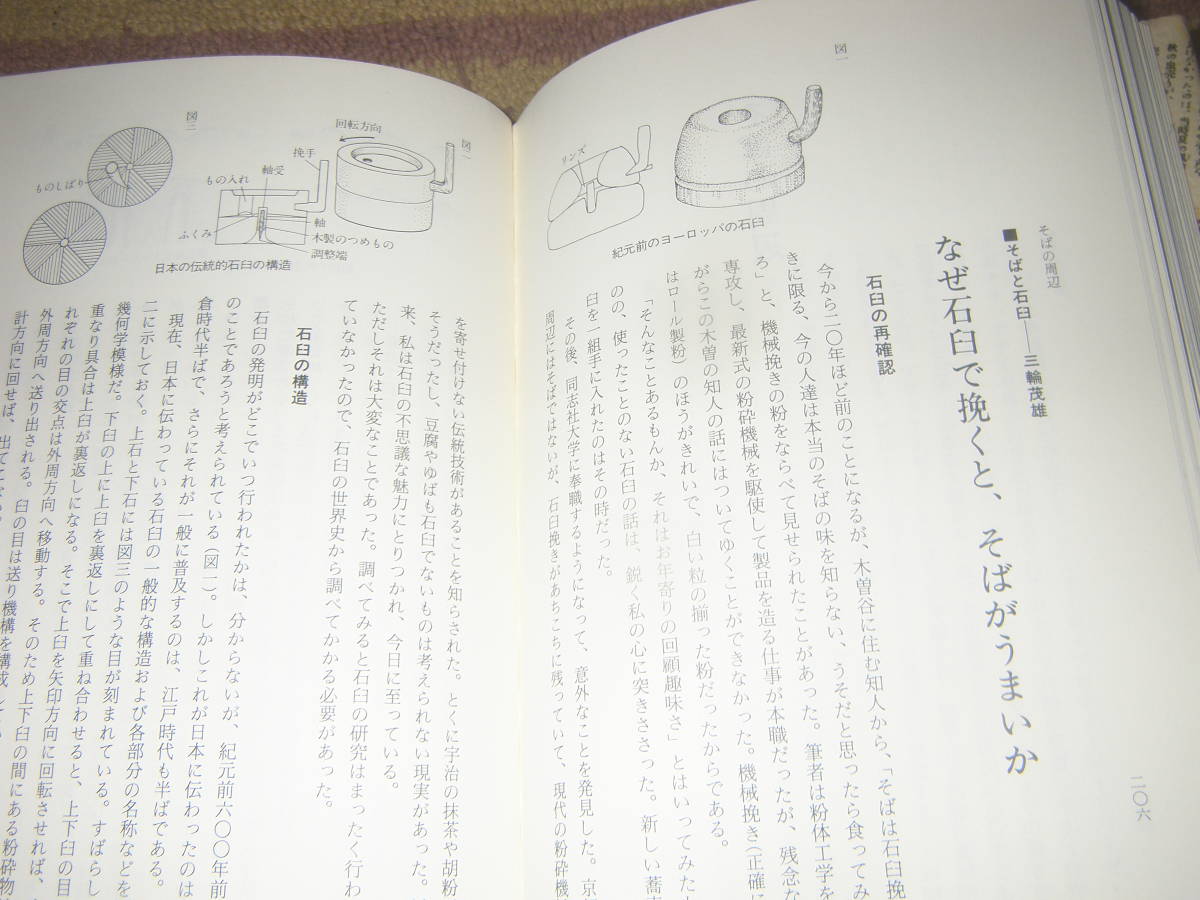 二〇六
そばの周辺
■そばと石臼──三輪茂雄
なぜ石臼で挽くと、そばがうまいか
石臼の再確認
今から二〇年ほど前のことになるが、木曽谷に住む知人から、「そばは石臼挽
きに限る、今の人達は本当のそばの味を知らない、うそだと思ったら食ってみ
ろ」と、機械挽きの粉をならべて見せられたことがあった。筆者は粉体工学を
専攻し、最新式の粉砕機械を駆使して製品を造る仕事が本職だったが、残念な
がらこの木曽の知人の話にはついてゆくことができなかった。機械挽き(正確に
はロール製粉)のほうがきれいで、白い粒の揃った粉だったからである。
「そんなことあるもんか、それはお年寄りの回顧趣味さ」とはいってみた
のの、使ったことのない石臼の話は、鋭く私の心に突きささった。新しい蕎
臼を一組手に入れたのはその時だった。
その後、同志社大学に奉職するようになって、意外なことを発見した。京
周辺にはそばではないが、石臼挽きがあちこちに残っていて、現代の粉砕機
図一
リンズ
紀元前のヨーロッパの石臼
を寄せ付けない伝統技術があることを知らされた。とくに宇治の抹茶や胡粉
そうだったし、豆腐やゆばも石臼でないものは考えられない現実があった。
来、私は石臼の不思議な魅力にとりつかれ、今日に至っている。
ただしそれは大変なことであった。調べてみると石臼の研究はまったく行わ
ていなかったので、石臼の世界史から調べてかかる必要があった。
石臼の構造
石臼の発明がどこでいつ行われたかは、分からないが、紀元前六〇〇年前
のことであろうと考えられている(図一)。しかしこれが日本に伝わったのは
倉時代半ばで、さらにそれが一般に普及するのは、江戸時代も半ばである。
現在、日本に伝わっている石臼の一般的な構造および各部分の名称などを
二に示しておく。上石と下石には図三のような目が刻まれている。すばらし
幾何学模様だ。下臼の上に上臼を裏返しにして重ね合わせると、上下臼の目
重なり具合は上臼が裏返しになる。そこで上臼を矢印方向に回転させれば、
れぞれの目の交点は外周方向へ移動する。そのため上下臼の間にある粉砕物
外周方向へ送り出される。臼の目は送り機構を構成し
計方向に回せば、出てこない
図二
回転方向
挽手
軸受
もの入れ
ふくみ
軸
木製のつめもの
調整端
日本の伝統的石臼の構造
図三
ものしばり